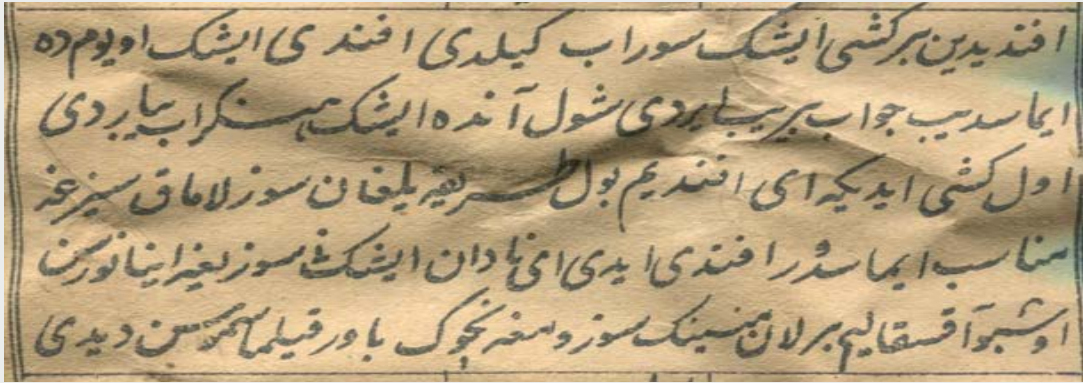 افندیدین برکشی ایشک سوراب کیلدی افندی ایشک اویوم ده
ایماسدیب جواب بریب ایردی شول آنده ایشک هنکراب بیاردی
اول کشی ایدیکه ای افندیم بول طریقه یلغان سوزلاماق سیزغه
مناسب ایماسدور افندی ایدی ای نادان ایشک سوزیغه اینانورسن
اوشبو آق سقالیم برلان مینینک سوزومغه نچوک باور قیلمایسن دیدی